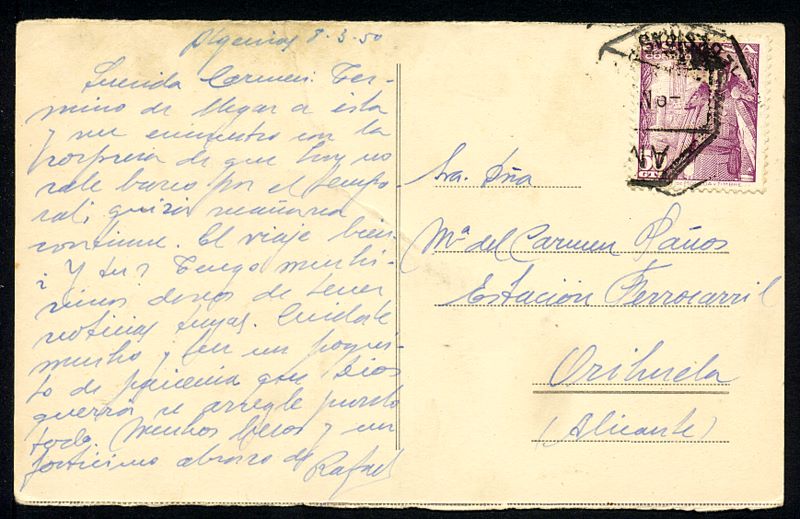 Algeciras 8-3-50
Querida Carmen: Ter-
mino de llegar a esta
y me encuentro con la
sorpresa de que hoy no
sale barco por el tempo-
ral, quizá mañana
continue. El viaje bien
¿Y tu? Tengo muchí-
simos deseos de tener
noticias tuyas. Cuidate
mucho y ten un poqui-
to de paciencia que Dios
querrá se arregle pronto
todo. Muchos besos y un
fortisimo abrazo de Rafael
Sra. Dña
Mª del Carmen Paños
Estación Ferrocarril
Orihuela
(Alicante)